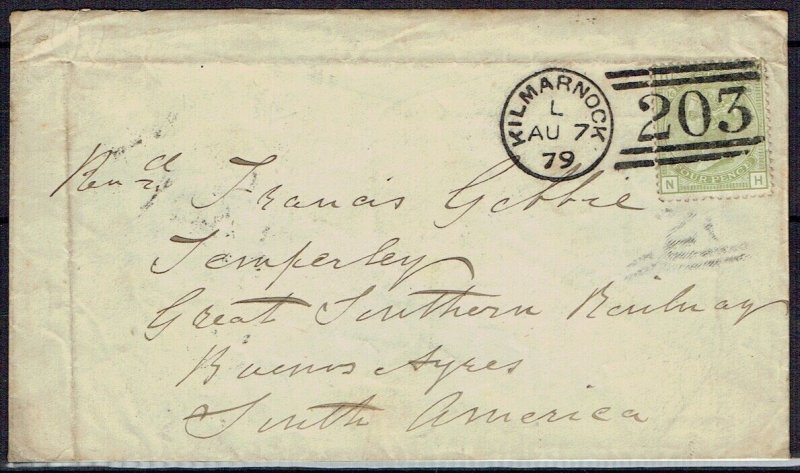 KILMARNOCK
L
AU 7
79
203
FOUR PENCE
N H
Revd Francis Gebbie
Temperley
Great Southern Railway
Buenos Ayres
South America